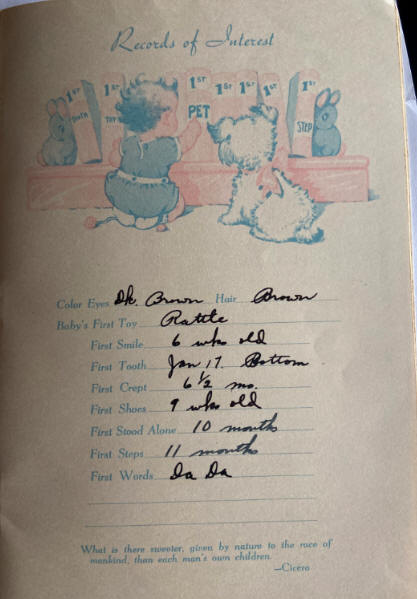 Records of Interest
1ST 1ST 1ST 1ST 1ST 1ST
TOOTH TOY PET STEP
Color Eyes Dk. Brown Hair Brown
Baby's First Toy Rattle
First Smile 6 wks old
First Tooth Jan 17. Bottom
First Crept 6 1/2 mo.
First Shoes 9 wks old
First Stood Alone 10 months
First Steps 11 months
First Words Da Da
What is there sweeter, given by nature to the race of
mankind, than each man's own children.
—Cicero